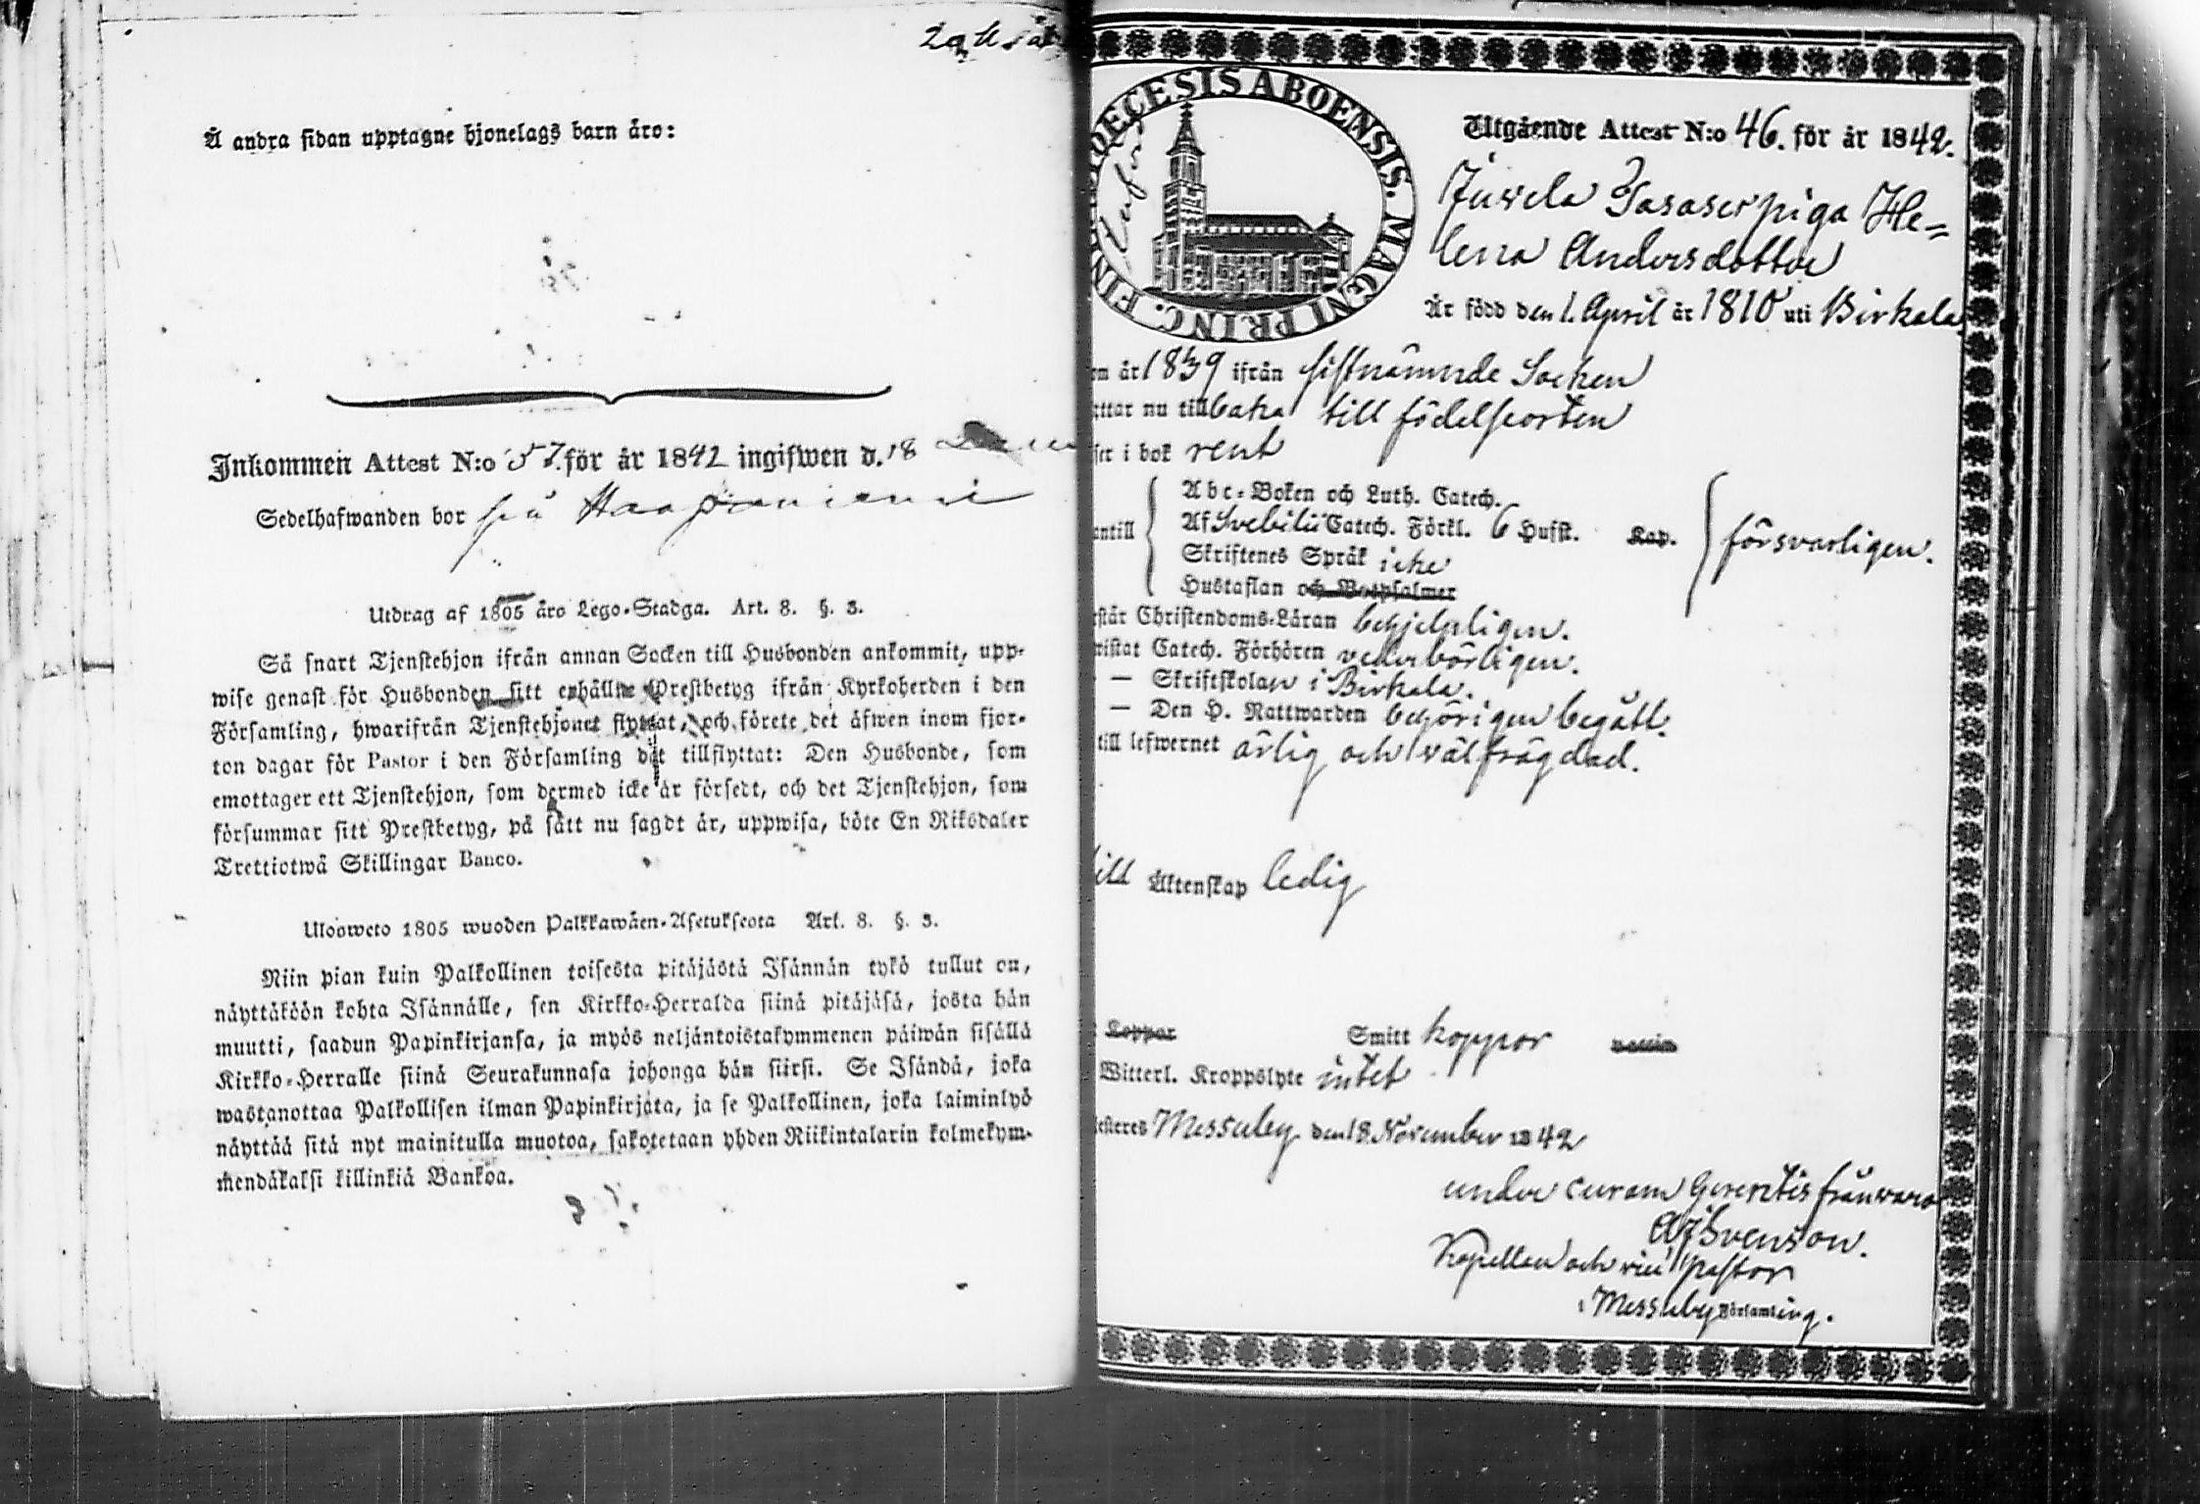 Å andra sidan upptagne hjonelags barn äro:
Inkommen Attest N:o 57. för år 1842 ingifwen d. 18
Sedelhafwanden bor på Haapaniemi
Utdrag af 1805 års Lego-Stadga. Art. 8. §. 3.
Så snart Tjenstehjon ifrån annan Socken till Husbonden ankommit, upp-
wise genast för Husbonden sitt erhållne Prestbetyg ifrån Kyrkoherden i den
Församling, hwarifrån Tjenstehjonet flyttat, och förete det äfwen inom fjor-
ton dagar för Pastor i den Församling dit tillflyttat: Den Husbonde, som
emottager ett Tjenstehjon, som dermed icke är försedt, och det Tjenstehjon, som
försummar sitt Prestbetyg, på sätt nu sagdt är, uppwisa, böte En Riksdaler
Trettiotwå Skillingar Banco.
Uloosweto 1805 wuoden Palkkawäen-Asetuksesta Art. 8. §. 3.
Niin pian kuin Palkollinen toisesta pitäjästä Isännän tykö tullut on,
näyttäköön kohta Isännälle, sen Kirkko-Herralda siinä pitäjäsä, josta hän
muutti, saadun Papinkirjansa, ja myös neljäntoistakymmenen päiwän sisällä
Kirkko-Herralle siinä Seurakunnasa johonga hän siirsi. Se Isändä, joka
wastanottaa Palkollisen ilman Papinkirjata, ja se Palkollinen, joka laiminlyö
näyttää sitä nyt mainitulla muotoa, sakotetaan yhden Riikintalarin kolmekym-
mendäkaksi killinkiä Bankoa.
DIOECESIS ABOENSIS. MAGNI PRINC. FIN
Utgående Attest N:o 46. för år 1842.
Juvela Sasaserpiga He-
lena Andersdotter
Är född den 1. April år 1810 uti Birkala
om år 1839 ifrån sistnämnde Socken
ttar nu tillbaka till födelseorten
ser i bok rent
Abc-Boken och Luth. Catech.
antill Af Svebilii Catech. Förkl. 6 Hufst. Kap. försvarligen.
Skriftenes Språk icke
Hustaflan och Botpsalmer
rstår Christendoms-Läran behjelpligen.
wistat Catech. Förhören vederbörligen.
— Skriftskolan i Birkala.
— Den H. Nattwarden behörigen begått.
till lefwernet ärlig och välfrägdad.
till Äktenskap ledig
Koppar Smitt koppor vaccin
Witterl. Kroppslyte intet
esteres Messuby den 18 November 1842
under curam Gerentis frånvaro
AJSvenson.
Kapellan och vice Pastor
i Messuby Församling.